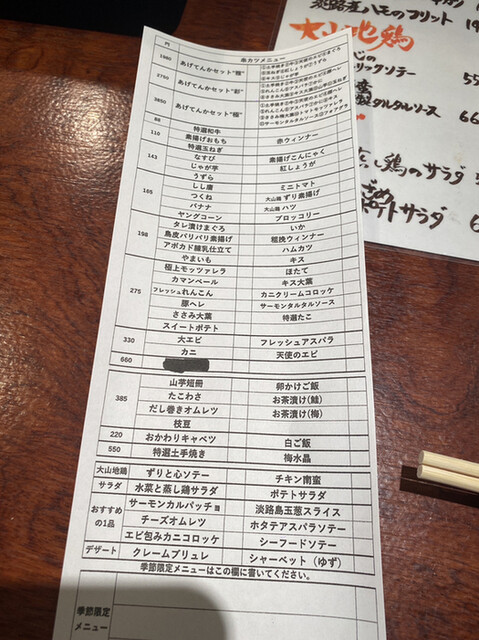 淡路産ハモのフリット
大山地鶏
リックソテー
55
タルタルソース
66
蒸し鶏のサラダ
ポテトサラダ
円
串カツメニュー
1980
あげてんかセット"雅"
2750
あげてんかセット"彩"
3850
あげてんかセット"極"
88
特選和牛
赤ウィンナー
110
素揚げおもち
特選玉ねぎ
143
なすび
素揚げこんにゃく
じゃが芋
紅しょうが
うずら
165
しし唐
ミニトマト
つくね
大山鶏 ずり素揚げ
バナナ
大山鶏 ハツ
ヤングコーン
ブロッコリー
198
タレ漬けまぐろ
いか
鳥皮パリパリ素揚げ
粗挽ウィンナー
アボカド練乳仕立て
ハムカツ
やまいも
キス
275
極上モッツァレラ
ほたて
カマンベール
キス大葉
フレッシュれんこん
カニクリームコロッケ
豚ヘレ
サーモンタルタルソース
ささみ大葉
特選たこ
スイートポテト
330
大エビ
フレッシュアスパラ
カニ
天使のエビ
660
385
山芋短冊
卵かけご飯
たこわさ
お茶漬け(鮭)
だし巻きオムレツ
お茶漬け(梅)
枝豆
220
おかわりキャベツ
白ご飯
550
特選土手焼き
梅水晶
大山地鶏
ずりと心ソテー
チキン南蛮
サラダ
水菜と蒸し鶏サラダ
ポテトサラダ
おすすめの1品
サーモンカルパッチョ
淡路島玉葱スライス
チーズオムレツ
ホタテアスパラソテー
エビ包みカニコロッケ
シーフードソテー
デザート
クレームブリュレ
シャーベット (ゆず)
季節限定メニューはこの欄に書いてください。
季節限定
メニュー